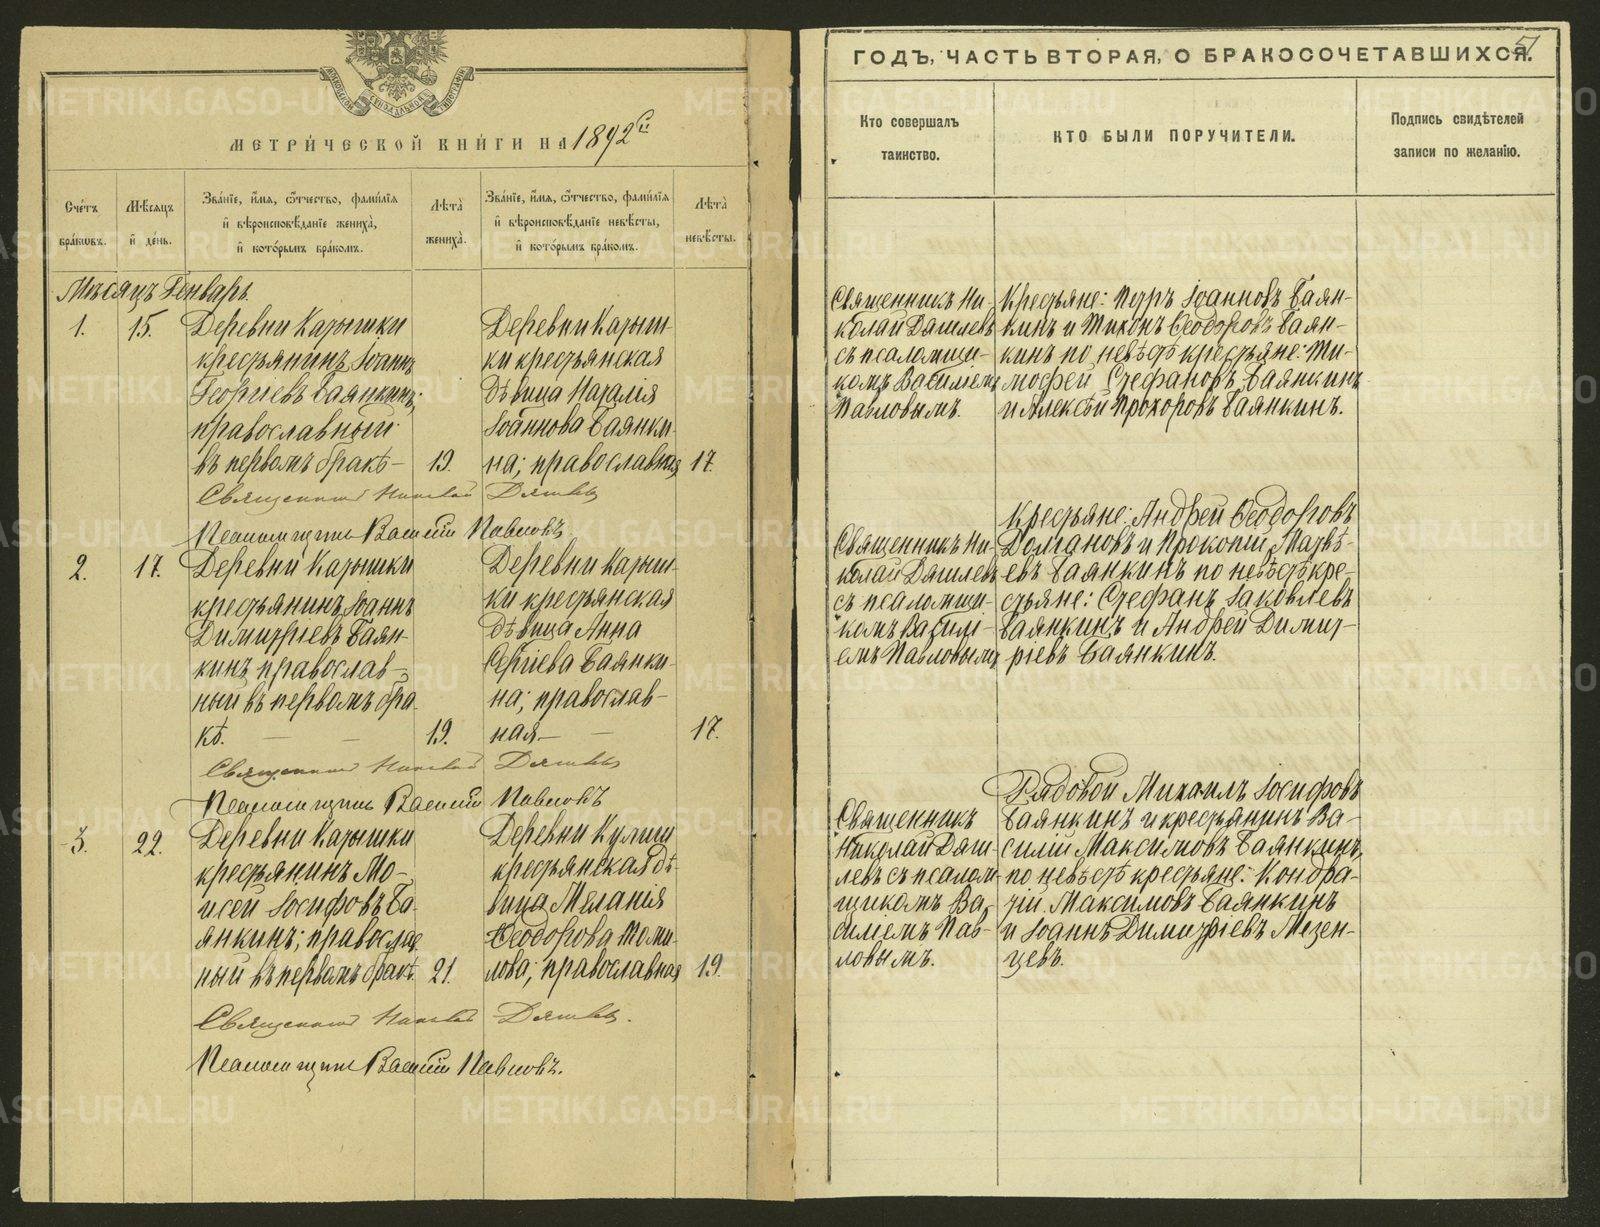 МОСКОВСКОЙ СѴНОДАЛЬНОЙ ТИПОГРАФІИ
МЕТРИ́ЧЕСКОЙ КНИ́ГИ НА 1892й
Сче́тъ бра́ковъ.
Мѣ́сяцъ и҆ де́нь.
Зва́нїе, и҆́мя, ѻ҆́тчество, фами́лїѧ
и҆ вѣроисповѣ́данїе жениха̀,
и҆ кото́рымъ бра́комъ.
Лѣта̀
жениха̀.
Зва́нїе, и҆́мя, ѻ҆́тчество, фами́лїѧ
и҆ вѣроисповѣ́данїе невѣ́сты,
и҆ кото́рымъ бра́комъ.
Лѣта̀
невѣ́сты.
Мѣсяцъ Генварь.
1.
15.
Деревни Катышки
крестьянинъ Іоаннъ
Георгіевъ Баянкинъ;
православный
въ первомъ бракѣ —
19.
Деревни Катыш-
ки крестьянская
дѣвица Наталія
Іоаннова Баянки-
на; православная
17.
Священникъ Николай Дяшлевъ
Псаломщикъ Василій Павловъ
2.
17.
Деревни Катышки
крестьянинъ Іоаннъ
Димитріевъ Баян-
кинъ православ-
ный въ первомъ бра-
кѣ. — —
19.
Деревни Катыш-
ки крестьянская
дѣвица Анна
Сергіева Баянки-
на; православ-
ная — —
17.
Священникъ Николай Дяшлевъ
Псаломщикъ Василій Павловъ
3.
22.
Деревни Катышки
крестьянинъ Мо-
исей Іосифовъ Ба-
янкинъ; православ
ный въ первомъ бракѣ.
21.
Деревни Кулиш
крестьянская дѣ-
вица Меланія
Ѳеодорова Томи-
лова; православная
19.
Священникъ Николай Дяшлевъ.
Псаломщикъ Василій Павловъ.
ГОДЪ, ЧАСТЬ ВТОРАЯ, О БРАКОСОЧЕТАВШИХСЯ.
5
Кто совершалъ
таинство.
КТО БЫЛИ ПОРУЧИТЕЛИ.
Подпись свидѣтелей
записи по желанію.
Священникъ Ни-
колай Дяшлевъ
съ псаломщи-
комъ Василіемъ
Павловымъ.
Крестьяне: Петръ Іоанновъ Баян-
кинъ и Тихонъ Ѳеодоровъ Баян-
кинъ по невѣстѣ крестьяне: Ти-
мофей Стефановъ Баянкинъ
и Алексѣй Прохоровъ Баянкинъ.
Священникъ Ни-
колай Дяшлевъ
съ псаломщи-
комъ Васили-
емъ Павловымъ
Крестьяне: Андрей Ѳеодоровъ
Долгановъ и Прокопій Матвѣ-
евъ Баянкинъ по невѣстѣ кре-
стьяне: Стефанъ Іаковлевъ
Баянкинъ и Андрей Димит-
ріевъ Баянкинъ.
Священникъ
Николай Дяш-
левъ съ псалом-
щикомъ Ва-
силіемъ Пав-
ловымъ.
Рядовой Михаилъ Іосифовъ
Баянкинъ и крестьянинъ Ва-
силій Максимовъ Баянкинъ,
по невѣстѣ крестьяне: Кондра-
тій Максимовъ Баянкинъ
и Іоаннъ Димитріевъ Мезен-
цевъ.
METRIKI.GASO-URAL.RU